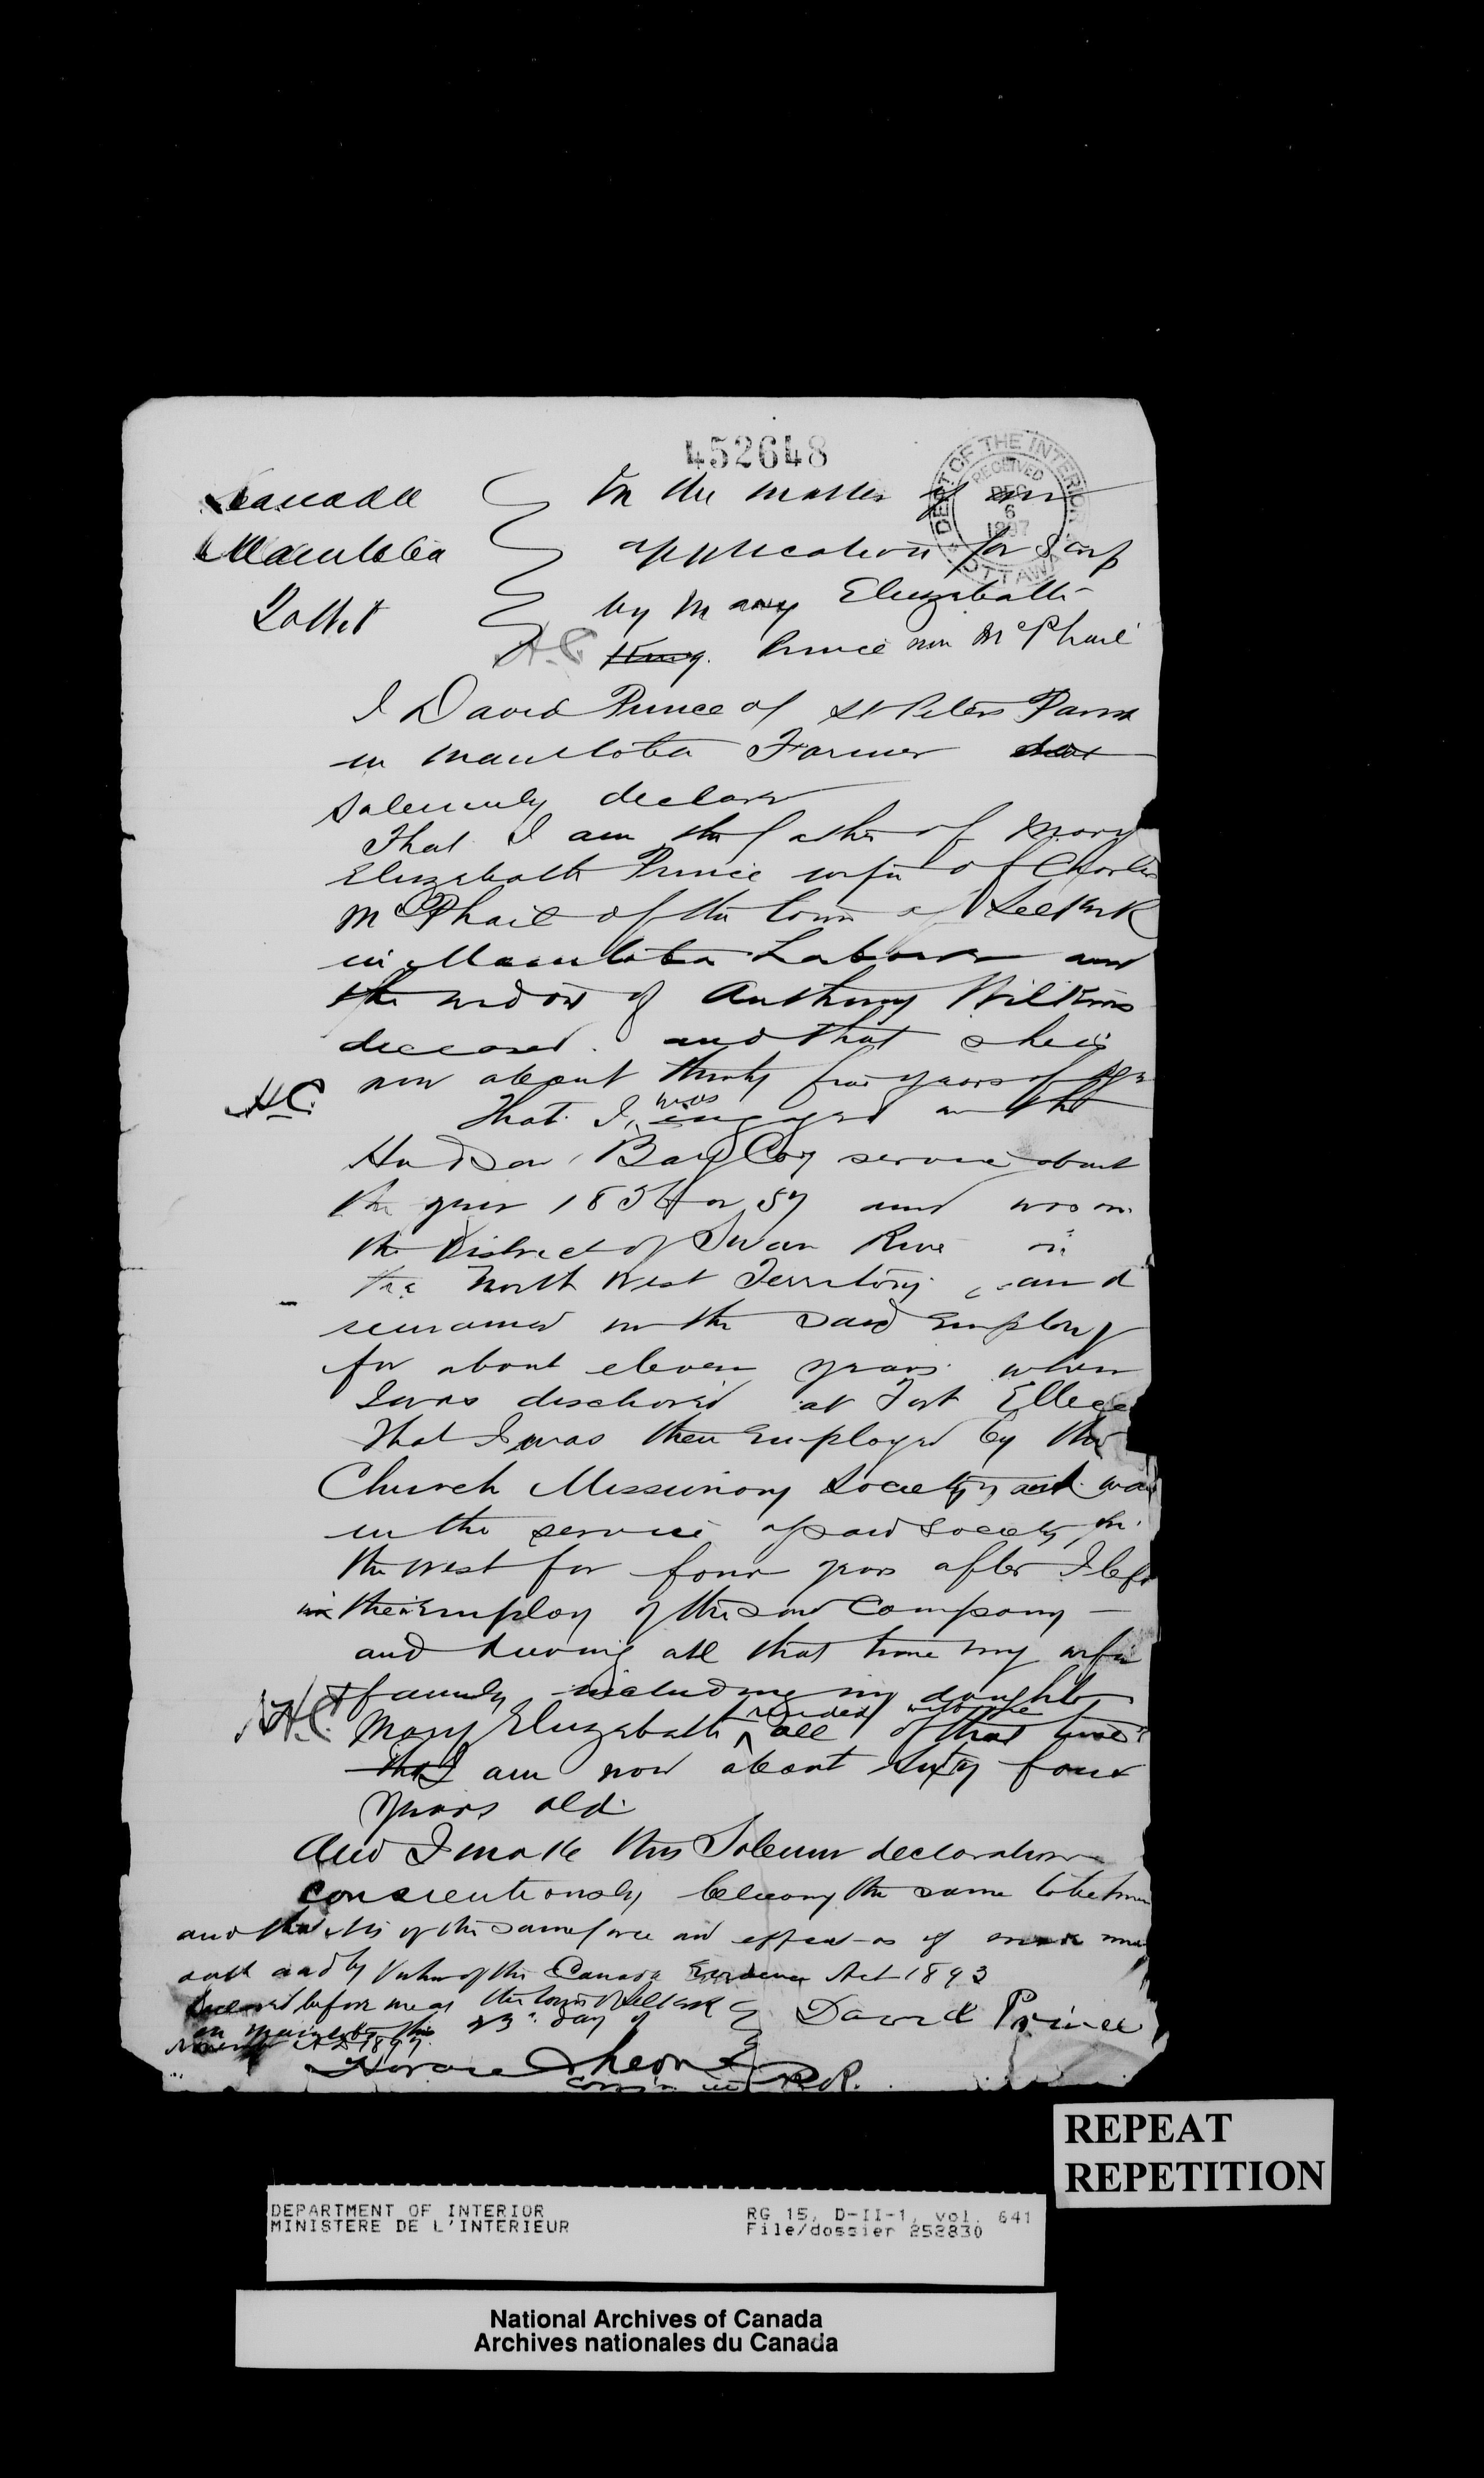 452648
DEPT OF THE INTERIOR
RECEIVED
DEC
6
1897
OTTAWA
Canada
Manitoba
To Wit
In the matter of an
application for Scrip
by Mary Elizabeth
H.C. King. Prince now McPhail
I David Prince of St Peters Parish
in Manitoba Farmer do
solemnly declare
That I am the father of Mary
Elizabeth Prince wife of Charles
McPhail of the town of Selkirk
in Manitoba Laborer and
the widow of Anthony Wilkins
deceased. and that she is
H.C. now about thirty five years of age
That I was engaged in the
Hudson Bay Coy service about
the year 1856 or 57 and was in
the District of Swan River in
the North West Territory, and
remained in the said employ
for about eleven years when
I was discharged at Fort Ellice
That I was then employed by the
Church Missionary Society and was
in the service of said Society in
the West for four years after I left
the employ of the said Company
and during all that time my wife
& family including my daughter
H.C. Mary Elizabeth resided with me all of that time
that I am now about sixty four
years old.
And I make this Solemn declaration
conscientiously believing the same to be true
and that it is of the same force and effect as if made under
oath and by Virtue of the Canada Evidence Act 1893
Declared before me at the town of Selkirk
in Manitoba this 23rd day of
November A D 1897.
David Prince
Horace
Com'r in B.R.
REPEAT
REPETITION
DEPARTMENT OF INTERIOR
MINISTERE DE L'INTERIEUR
RG 15, D-II-1, vol. 641
File/dossier 252830
National Archives of Canada
Archives nationales du Canada